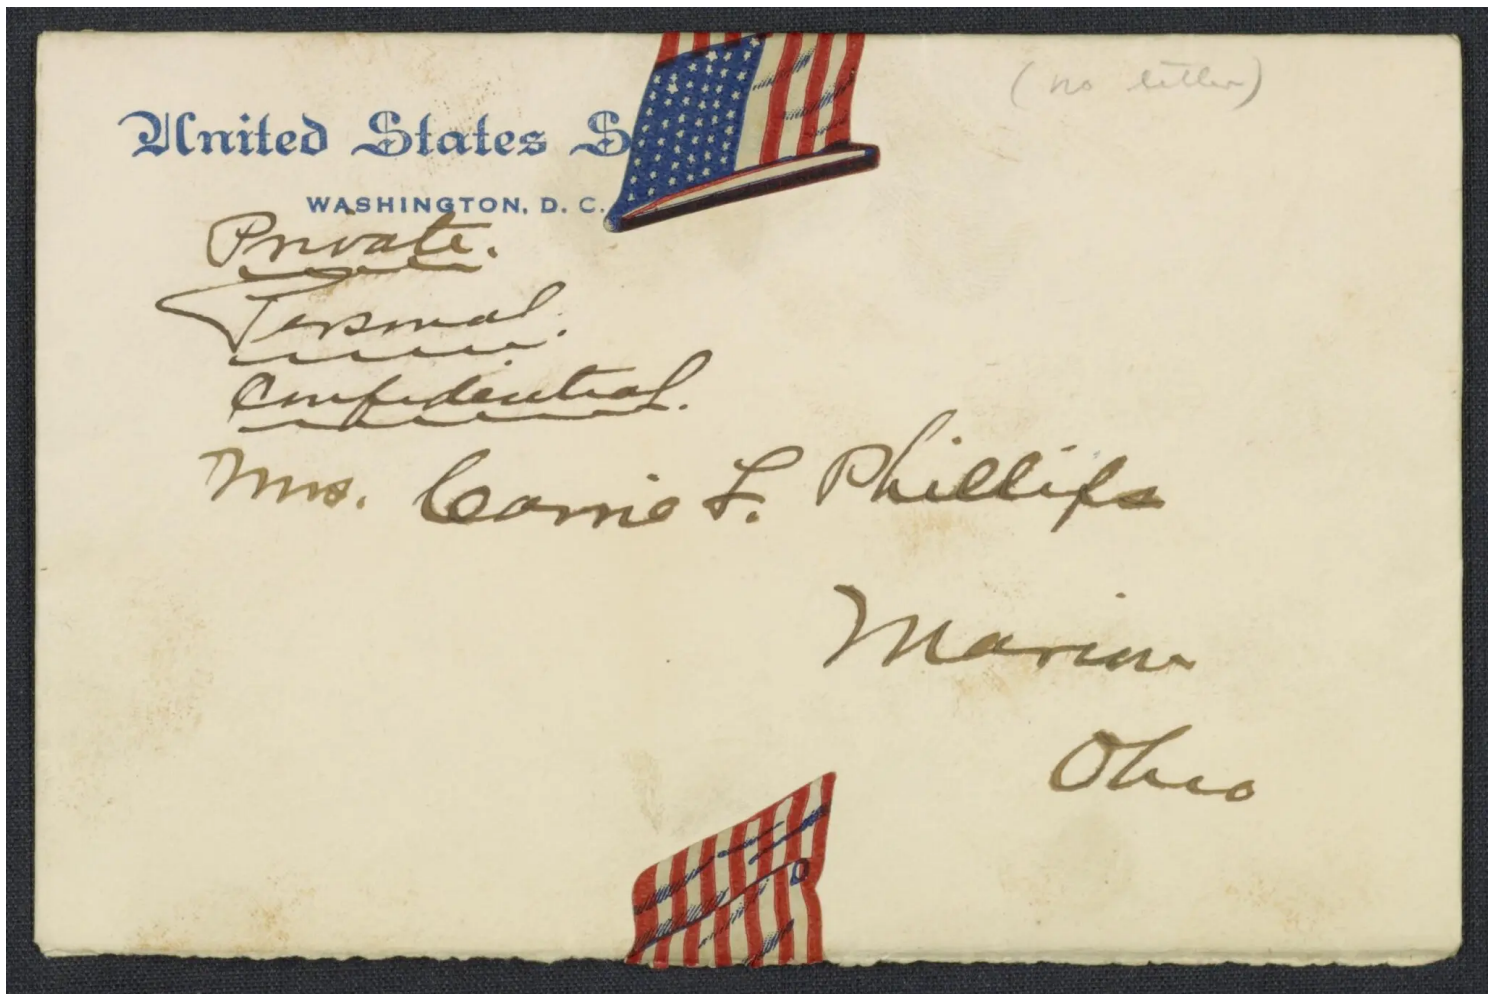 (no letter)
United States S
WASHINGTON, D. C.
Private.
Personal.
Confidential.
Mrs. Carrie F. Phillips
Marion
Ohio